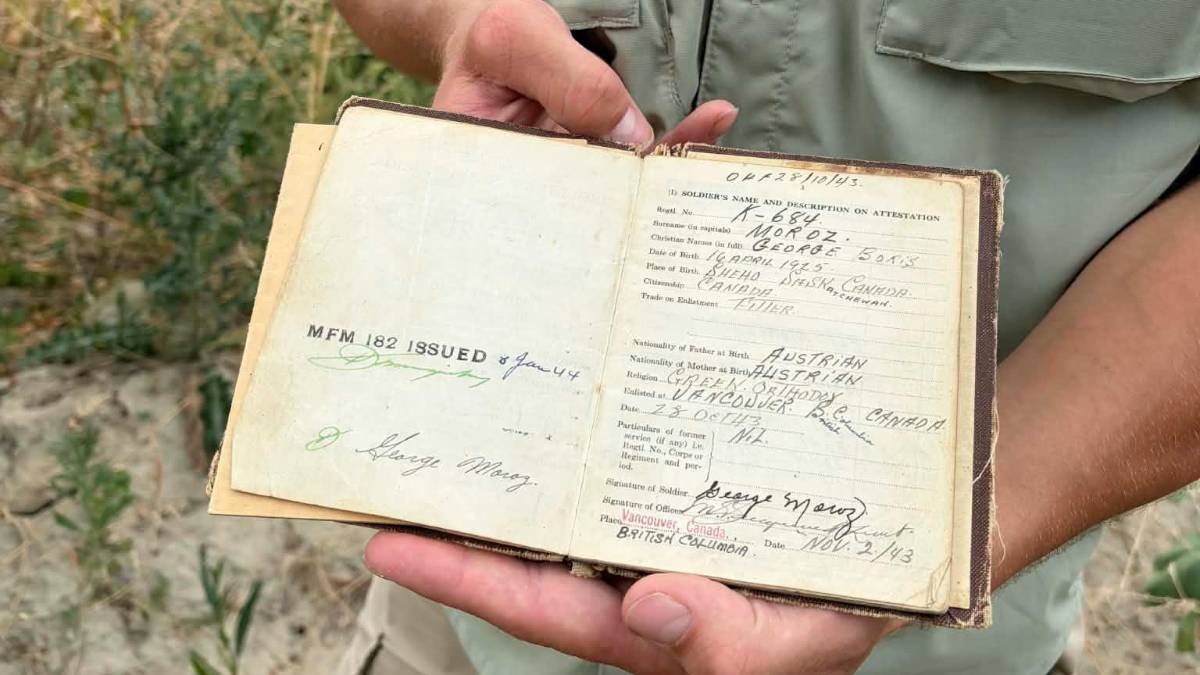 MFM 182 ISSUED 8 Jan 44
George Moroz.
OHF 28/10/43.
(1) SOLDIER'S NAME AND DESCRIPTION ON ATTESTATION
Regtl. No. K-684.
Surname (in capitals) MOROZ.
Christian Names (in full) GEORGE BORIS
Date of Birth 16 APRIL 1925.
Place of Birth SHEHO SASK CANADA.
ATCHEWAN.
Citizenship CANADA
Trade on Enlistment FITTER.
Nationality of Father at Birth AUSTRIAN
Nationality of Mother at Birth AUSTRIAN
Religion GREEK ORTHODOX
Enlisted at VANCOUVER. B.C. CANADA.
British Columbia
Date 28 OCT 43
Particulars of former
service (if any) i.e.
Regtl. No., Corps or
Regiment and per-
iod.
NIL.
Signature of Soldier George Moroz
Signature of Officer
Place Vancouver, Canada,
BRITISH COLUMBIA.
Date NOV. 2/43